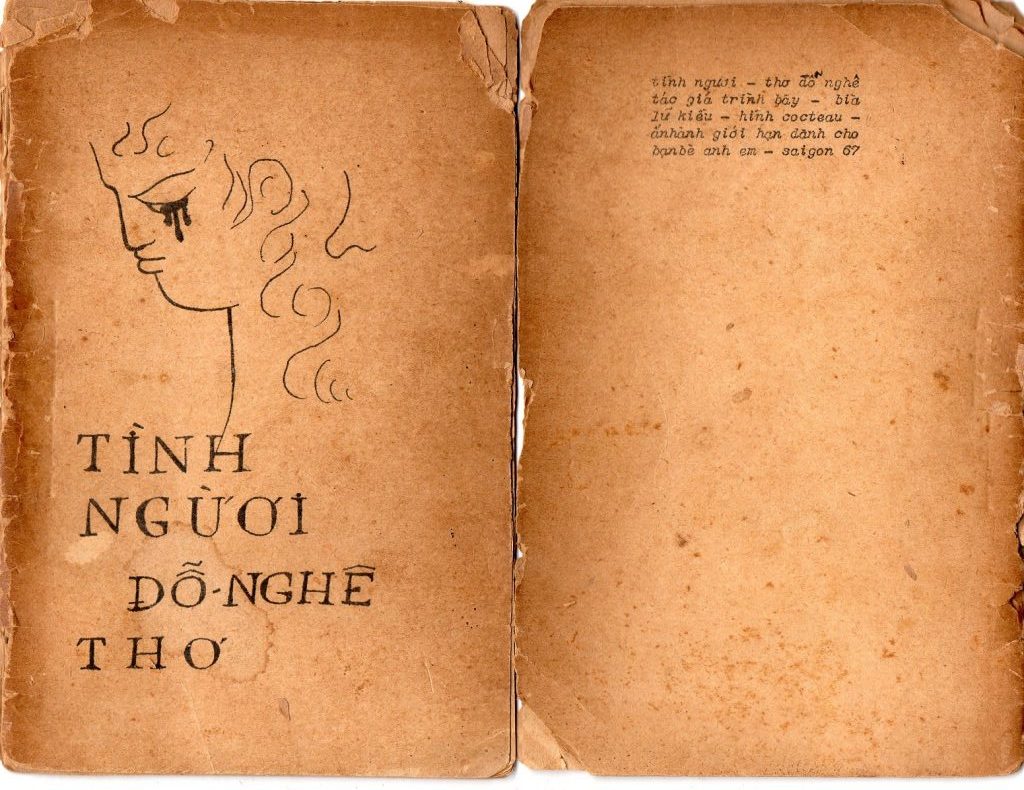 TÌNH
NGƯỜI
ĐỖ-NGHÊ
THƠ
tình người – thơ đỗ nghê
tác giả trình bày – bìa
lữ kiều – hình cocteau –
ấnhành giới hạn dành cho
bạnbè anh em – saigon 67